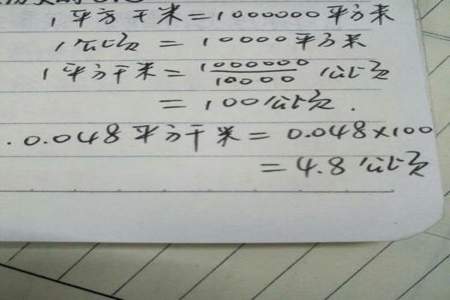 1平方千米=1000000平方米
1公顷=10000平方米
1平方千米=1000000/10000公顷
=100公顷.
.0.048平方千米=0.048×100
=4.8公顷